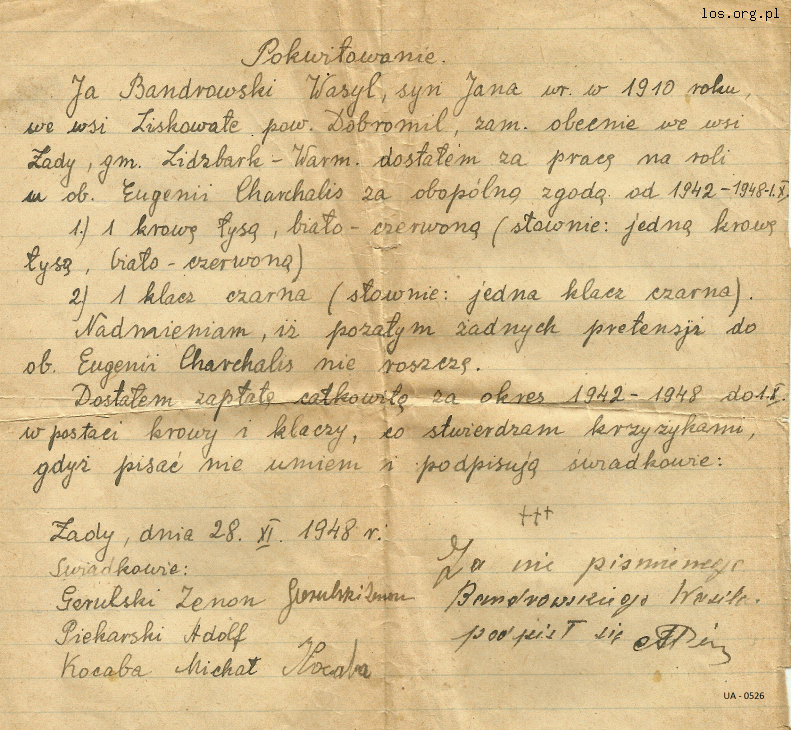 los.org.pl
Pokwitowanie.
Ja Bandrowski Wasyl, syn Jana ur. w 1910 roku,
we wsi Liskowate pow. Dobromil, zam. obecnie we wsi
Żady, gm. Lidzbark - Warm. dostałem za pracę na roli
u ob. Eugenii Charchalis za obopólną zgodą od 1942 - 1948-1.X.
1.) 1 krowę łysą, biało - czerwoną (słownie: jedną krowę
łysą, biało - czerwoną)
2) 1 klacz czarna (słownie: jedna klacz czarna).
Nadmieniam, iż pozatym żadnych pretensji do
ob. Eugenii Charchalis nie roszczę.
Dostałem zapłatę całkowitą za okres 1942 - 1948 do 1.X.
w postaci krowy i klaczy, co stwierdzam krzyżykami,
gdyż pisać nie umiem i podpisują świadkowie:
+++
Żady, dnia 28. XI. 1948 r.
Świadkowie:
Za nie pismienego
Gerulski Zenon Gerulski Zenon
Bandrowskiego Wasila.
Piekarski Adolf
podpisł się
Kocaba Michał Kocaba
UA - 0526